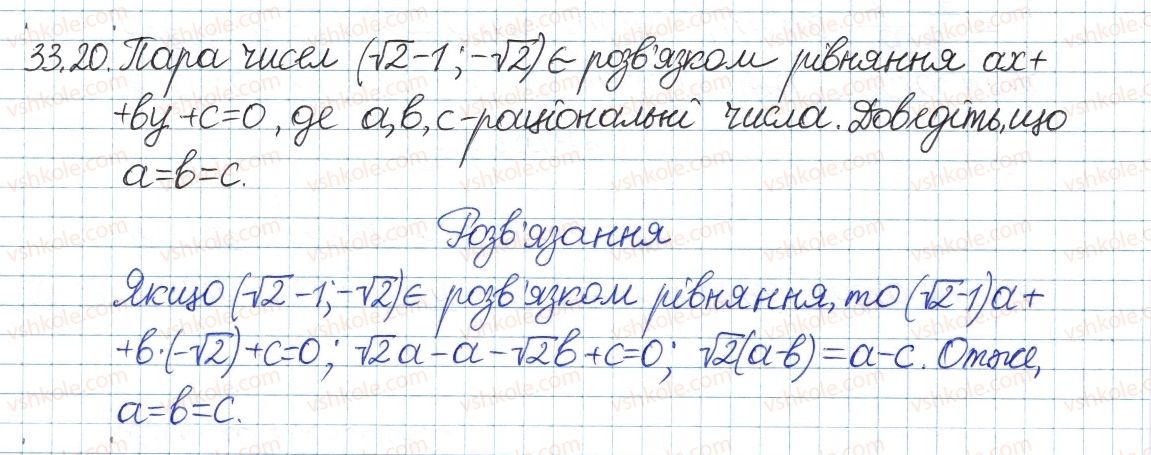 33.20. Пара чисел (√2-1; -√2) є розв'язком рівняння ax+
+by+c=0, де a,b,c-раціональні числа. Доведіть, що
a=b=c.
Розв'язання
Якщо (√2-1; -√2) є розв'язком рівняння, то (√2-1)a+
+b·(-√2)+c=0; √2a-a-√2b+c=0; √2(a-b)=a-c. Отже,
a=b=c.